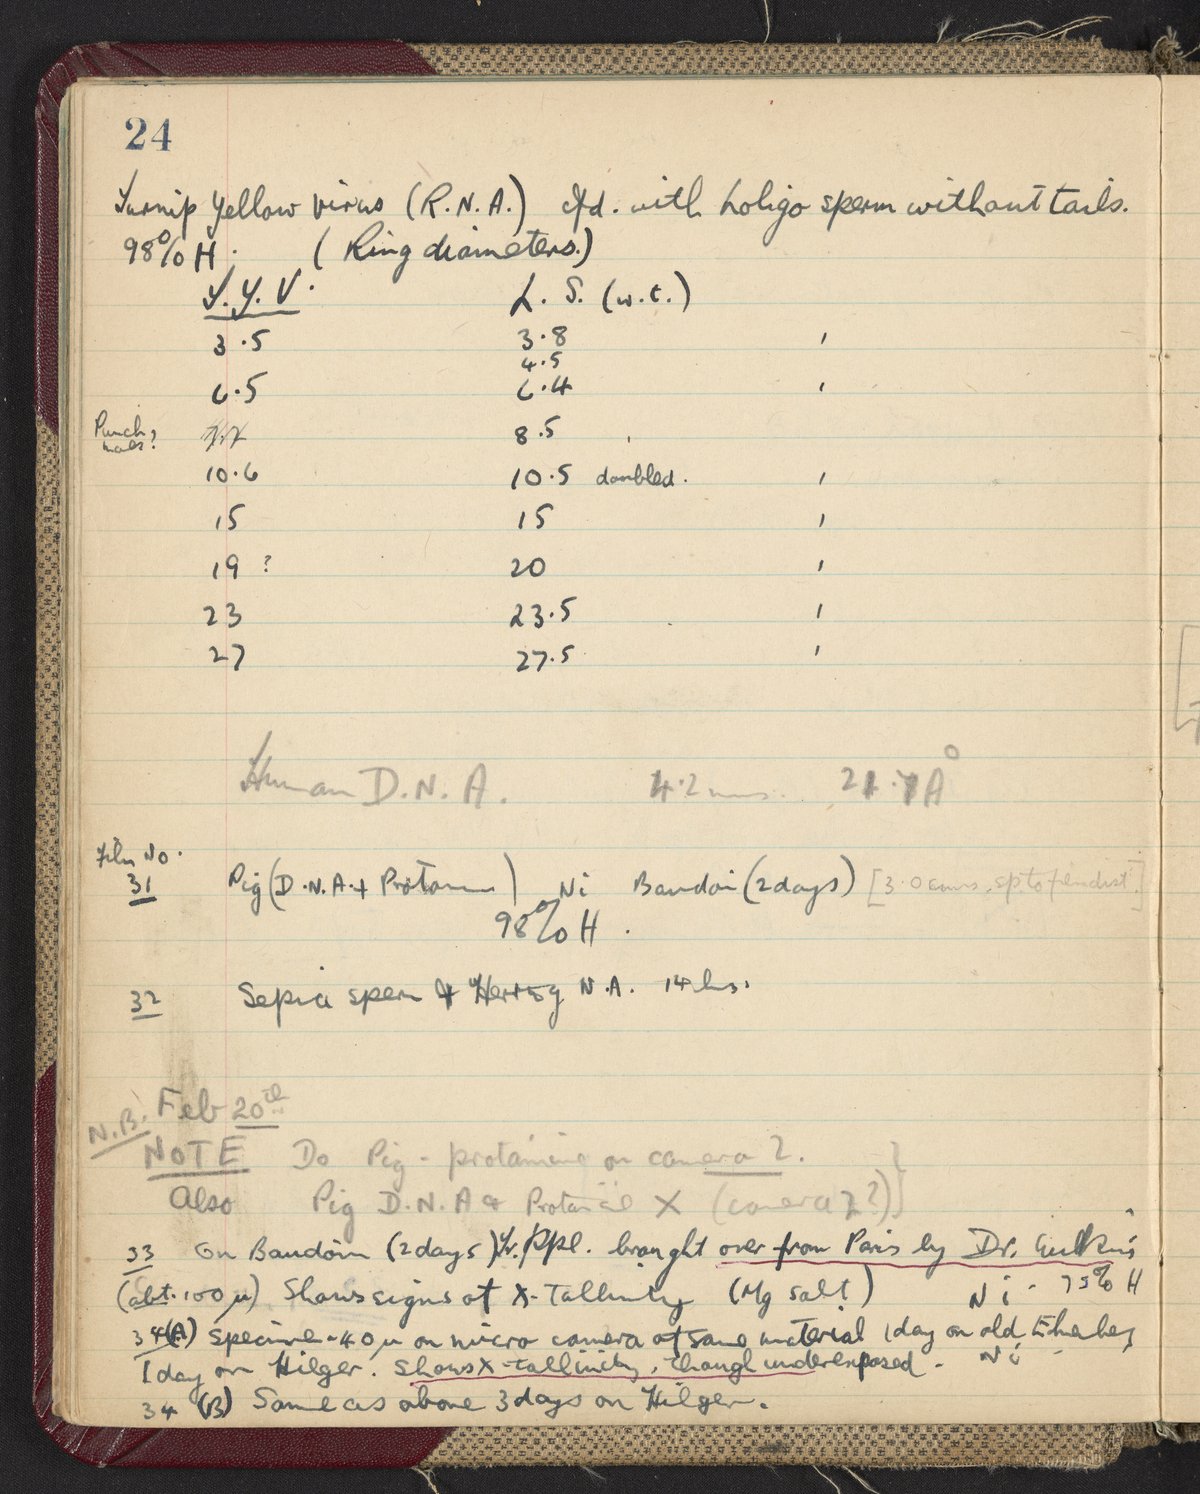 24
Turnip Yellow virus (R.N.A.) cfd. with Loligo sperm without tails.
98% H. (Ring diameters.)
T.Y.V. L.S. (w.t.)
3.5 3.8
4.5
6.5 6.4
Punch ?
8.5
10.6 10.5 doubled.
15 15
19 ? 20
23 23.5
27 27.5
Human D.N.A. 4.2 mms. Å
Film No.
31 Pig (D.N.A. + Protamine) Ni Baudoin (2 days) [3.0 cms. sp to film dist.]
98% H.
32 Sepia sperm & Herring N.A. 14 hrs.
N.B. Feb 20th
NOTE Do Pig - protamine on camera 2.
Also Pig D.N.A & Protamine X (camera 2?)
33 On Baudoin (2 days) Yr. Ppl. brought over from Paris by Dr.
(abt. 100 μ) Shows signs of X-Tallinity (Mg salt) Ni - 75% H
34(A) Specimen - 40 μ on micro camera of same material 1 day on old
1 day on Hilger. Shows X-tallinity, though underexposed. Ni -
34 (B) Same as above 3 days on Hilger.